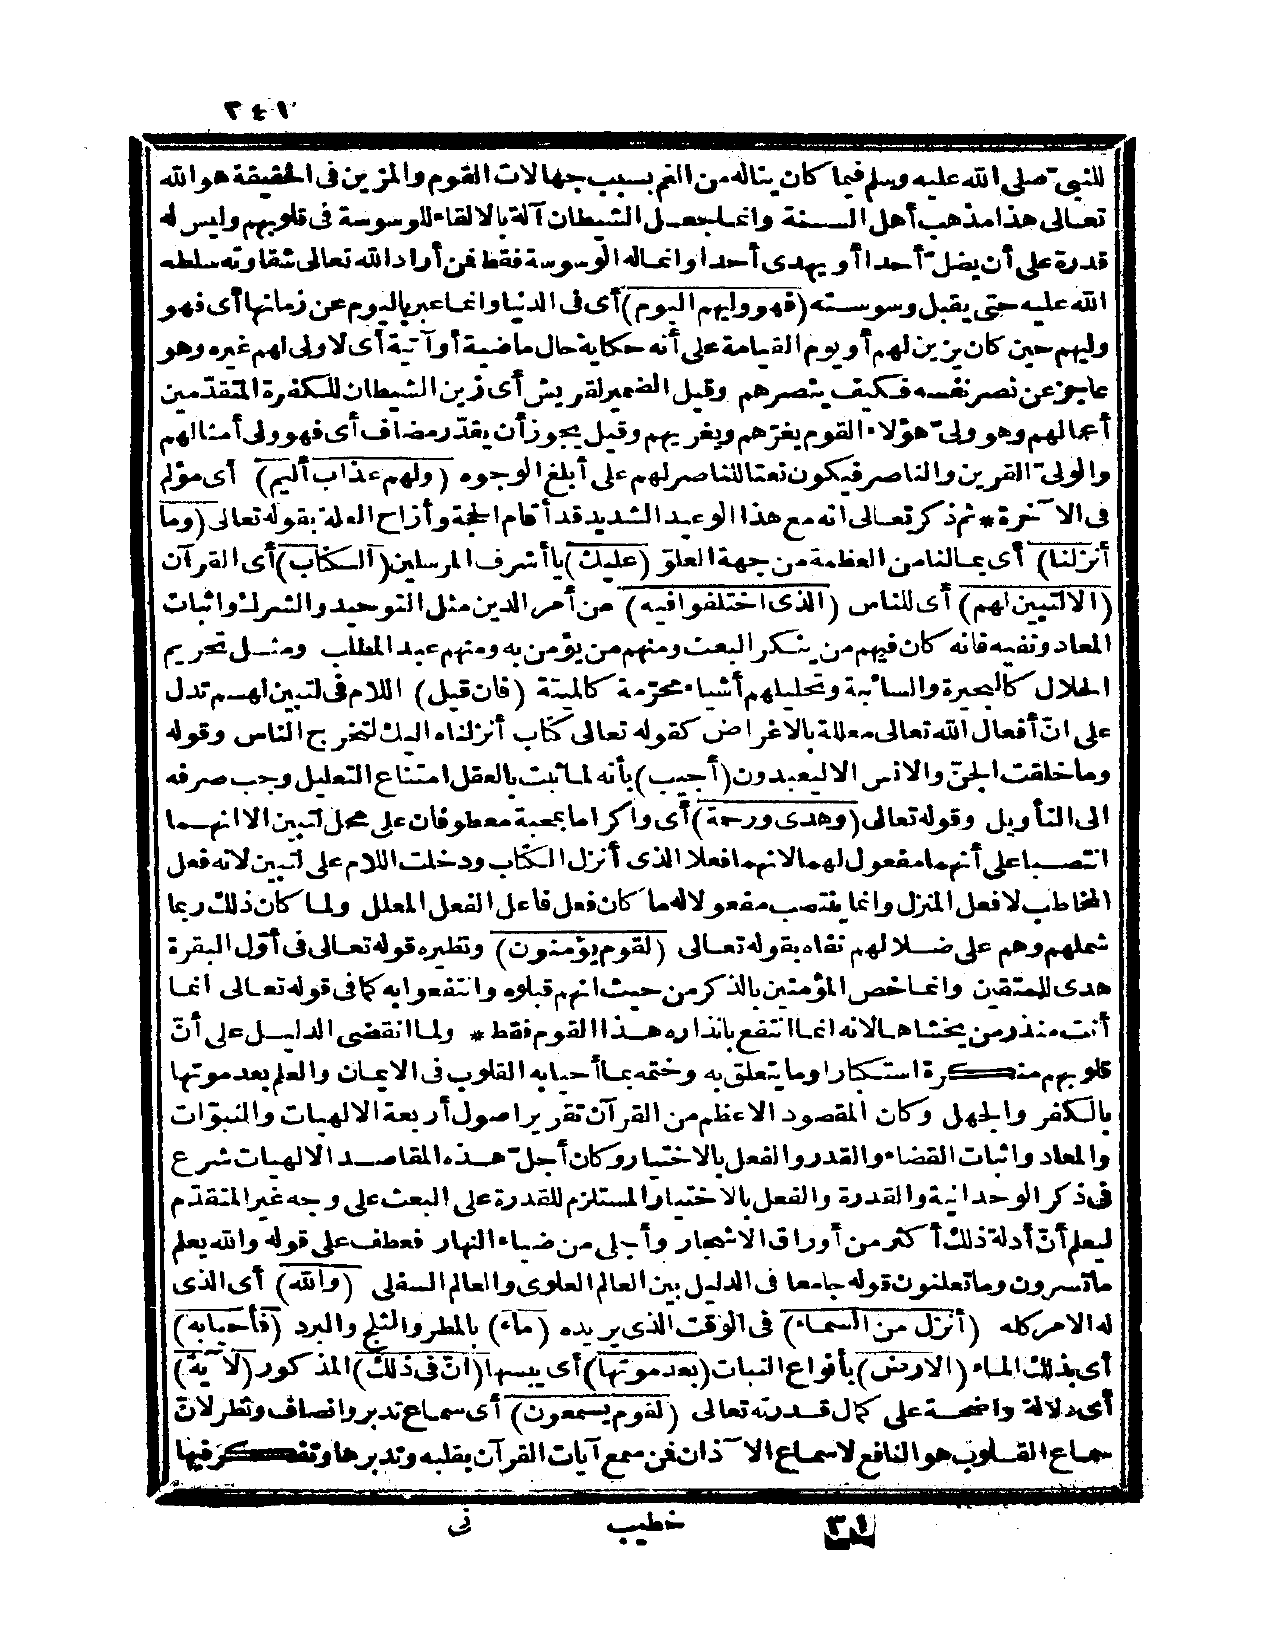 ٢٤١
للنبيّ صلى الله عليه وسلم فيما كان يناله من الغم بسبب جهالات القوم والمزين في الحقيقة هو الله
تعالى هذا مذهب أهل السنة وانما جعل الشيطان آلة بالالقاء للوسوسة في قلوبهم وليس له
قدرة على أن يضلّ أحدا أو يهدى أحدا وانما له الوسوسة فقط فمن أراد الله تعالى شقاوته سلطه
الله عليه حتى يقبل وسوسته (فهو وليهم اليوم) أى في الدنيا وانما عبر باليوم عن زمانها أى فهو
وليهم حين كان يزين لهم أو يوم القيامة على أنه حكاية حال ماضية أو آتية أى لا ولى لهم غيره وهو
عاجز عن نصر نفسه فكيف ينصرهم وقيل الضمير لقريش أى زين الشيطان للكفرة المتقدّمين
أعمالهم وهو ولىّ هؤلاء القوم يغرّهم ويغريهم وقيل يجوز أن يقدّر مضاف أى فهو ولى أمثالهم
والولىّ القرين والناصر فيكون نعتا للناصر لهم على أبلغ الوجوه (ولهم عذاب أليم) أى مؤلم
في الآخرة * ثم ذكر تعالى انه مع هذا الوعيد الشديد قد أقام الحجة وأزاح العلة بقوله تعالى (وما
أنزلنا) أى بما لنا من العظمة من جهة العلوّ (عليك) يا أشرف المرسلين (الكتاب) أى القرآن
(الا لتبين لهم) أى للناس (الذى اختلفوا فيه) من أمر الدين مثل التوحيد والشرك واثبات
المعاد ونفيه فانه كان فيهم من ينكر البعث ومنهم من يؤمن به ومنهم عبد المطلب ومثل تحريم
الحلال كالبحيرة والسائبة وتحليلهم أشياء محرّمة كالميتة (فان قيل) اللام في لتبين لهم تدل
على انّ أفعال الله تعالى معللة بالاغراض كقوله تعالى كتاب أنزلناه اليك لتخرج الناس وقوله
وما خلقت الجنّ والانس الا ليعبدون (أجيب) بأنه لما ثبت بالعقل امتناع التعليل وجب صرفه
الى التأويل وقوله تعالى (وهدى ورحة) أى واكراما بمحبة معطوفان على محل لتبين الا انهما
انتصبا على أنهما مفعول لهما لانهما فعلا الذى أنزل الكتاب ودخلت اللام على لتبين لانه فعل
المخاطب لا فعل المنزل وانما ينتصب مفعولا له ما كان فعل فاعل الفعل المعلل ولما كان ذلك ربما
شملهم وهم على ضلالهم نفاه بقوله تعالى (لقوم يؤمنون) ونظيره قوله تعالى في أوّل البقرة
هدى للمتقين وانما خص المؤمنين بالذكر من حيث انهم قبلوه وانتفعوا به كما في قوله تعالى انما
أنت منذر من يخشاها لانه انما انتفع بانذاره هذا القوم فقط * ولما انقضى الدليل على أنّ
قلوبهم منكرة استكبارا وما يتعلق به وختمه بما أحيا به القلوب في الايمان والعلم بعد موتها
بالكفر والجهل وكان المقصود الاعظم من القرآن تقرير اصول أربعة الالهيات والنبوّات
والمعاد واثبات القضاء والقدر والفعل بالاختيار وكان أجلّ هذه المقاصد الالهيات شرع
في ذكر الوحدانية والقدرة والفعل بالاختيار المستلزم للقدرة على البعث على وجه غير المتقدّم
ليعلم أنّ أدلة ذلك أكثر من أوراق الاشجار وأجلى من ضياء النهار فعطف على قوله والله يعلم
ما تسرون وما تعلنون قوله جامعا في الدليل بين العالم العلوى والعالم السفلى (والله) أى الذى
له الامر كله (أنزل من السماء) في الوقت الذى يريده (ماء) بالمطر والثلج والبرد (فأحيا به)
أى بذلك الماء (الارض) بأنواع النبات (بعد موتها) أى يبسها (انّ في ذلك) المذكور (لآية)
أى دلالة واضحة على كمال قدرته تعالى (لقوم يسمعون) أى سماع تدبر وانصاف ونظر لانّ
سماع القلوب هو النافع لاسماع الآذان فمن سمع آيات القرآن بقلبه وتدبرها وتفكر فيها
٣١ خطيب نى